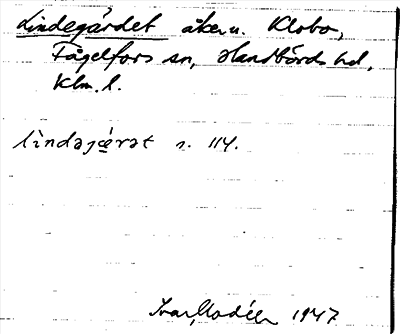 Lindegärdet åker u. Klobo,
Fågelfors sn, Handbörds hd,
Klm. l.
s. 114.
Ivar Modéer 1947